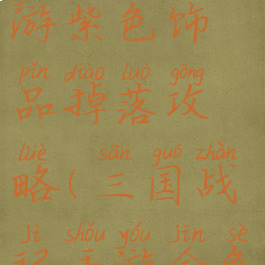 游紫色饰
pǐn diào luò gōng
品掉落攻
lüè sān guó zhàn
略(三国战
jì shǒu yóu jīn sè